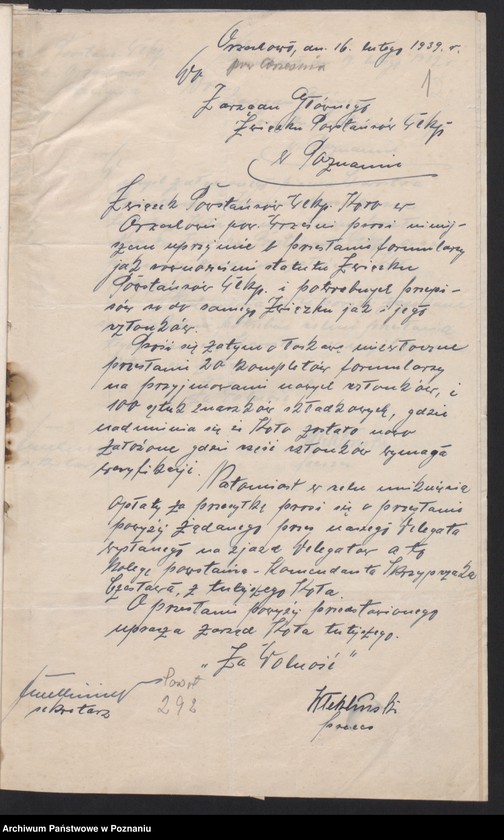 Orzechowo, dn. 16. lutego 1939. r.
pow Września
1
Do
Zarządu Głównego
Związku Powstańców Wlkp
w Poznaniu
Związek Powstańców Wlkp. Koło w
Orzechowie pow. Wrześni prosi niniej-
szem uprzejmie o przesłanie formularzy
jak równocześnie statutu Związku
Powstańców Wlkp. i potrzebnych przepi-
sów co do samego Związku jak i jego
członków.
Prosi się zatym o łaskawe niezwłoczne
przesłanie 20 kompletów formularzy
na przyjmowanie nowych członków, i
100 sztuk znaczków składkowych, gdzie
nadmienia się iż Koło zostało nowo
założone gdzie część członków wymaga
weryfikacji.
Natomiast w celu uniknięcia
opłaty za przesyłkę prosi się o przesłanie
powyżej żądanego przez naszego Delegata
wysłanego na zjazd Delegatów a to
Kolegę powstańca - Komendanta Skrzypczaka
Czesława, z tutejszego Koła.
O przesłanie powyżej przedstawionego
uprasza zarząd Koła tutejszego.
"Za Wolność"
sekretarz
292
prezes
Archiwum Państwowe w Poznaniu